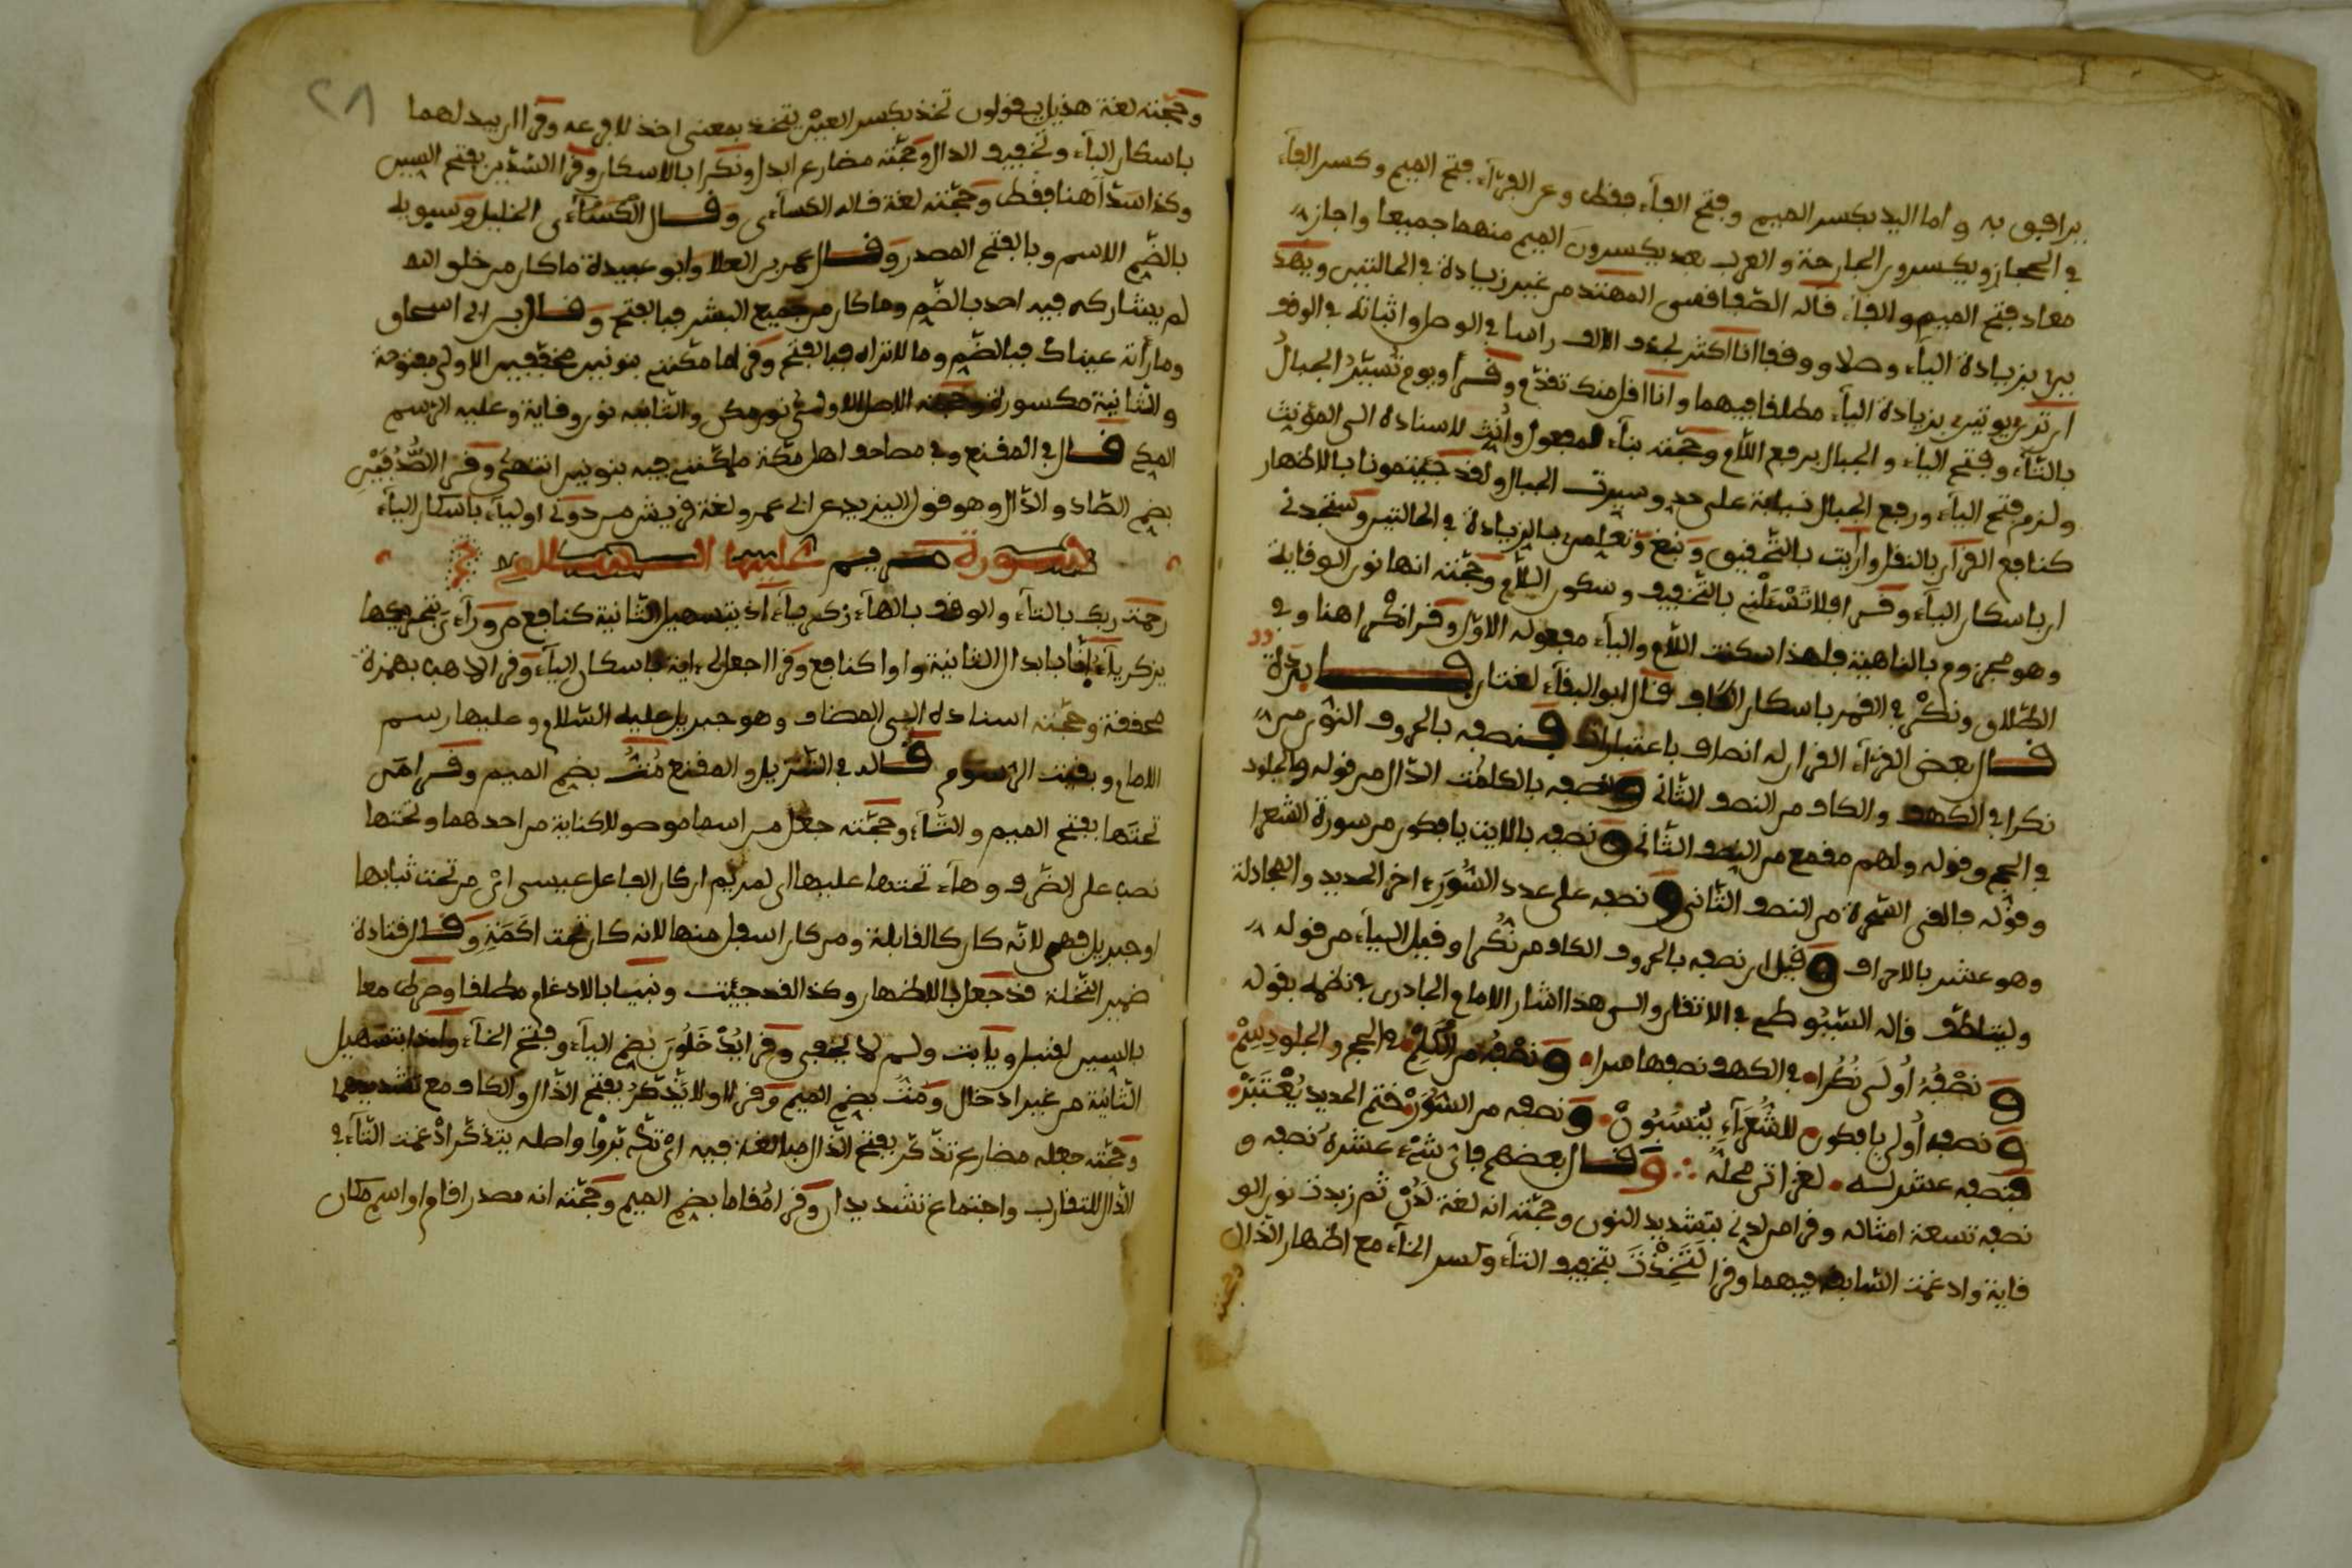 يرافيق به واما اليد بكسر الميم وفتح الفاء فقط وعن الفراء فتح الميم وكسر الفاء
في الحجاز ويكسرون الجارحة والعرب بعد يكسرون الميم منهما جميعا واجاز
معاد فتح الميم والفاء قاله الصفاقسي المهتد من غير زيادة في الحالتين ويهد
ين بزيادة الياء وصلا ووقفا انا اكثر بحذف الالف راسا في الوصل واثباته في الوقف
ان ترن يوتين بزيادة الياء مطلقا فيهما وانا اقل منك تقدم وقرأ ويوم تُسَيَّرُ الجبالُ
بالتاء وفتح الياء والجبال برفع اللام وحجته بناء للمفعول وأنث لاسناده الى المؤنث
ولزم فتح الياء ورفع الجبال نيابة على حد وسيرت الجبال ولقد جيتمونا بالاظهار
كنافع القرآن بالنقل وارايت بالتحقيق ونبغ وتعلمن بالزيادة في الحالتين وستجدني
ان باسكان الياء وقرا فلا تَسْئَلْنِي بالتخفيف وسكون اللام وحجته انها نون الوقاية
وهو مجزوم بالناهية فلهذا سكنت اللام والياء مفعوله الاول وقرا نكرا هنا وفي
الطلاق ونكر في القمر باسكان الكاف قال ابو البقاء لغتان فايدة
قال بعض القراء القران له انصاف باعتبارات فنصفه بالحروف النون من
نكرا في الكهف والكاف من النصف الثاني ونصفه بالكلمت الدال من قوله والجلود
في الحج وقوله ولهم مقمع من النصف الثاني ونصفه بالايت يافكون من سورة الشعرا
وقوله فالقى السحرة من النصف الثاني ونصفه على عدد السُّوَرِ اخر الحديد والمجادلة
وهو عشر بالاحزاف وقيل ان نصفه بالحروف الكاف من نُكُرا وقيل الياء من قوله
وليتلطف قاله السيوطي في الاتقان والى هذا اشار الامام الجادري في نظمه بقوله
ونصْفُهُ أُولَى نُكُرا في الكهف نصفها ميرا ونصْفُه من الكَلِمْ في الحج والجلود سِمْ
ونصفه أُولى يافكون للشُّعَرَآءِ يَنْسَبُونْ ونصفه من السُّوَرْ ختم الحديد يُعْتَبَرْ
فنصفه عشر لسه لغزا تر محله وقال بعضهم فاى شىء عشره نصفه و
نصفه تسعة امثاله وقرا من لدني بتشديد النون وحجته انه لغة لَدُنْ ثم زيدت نون الو
قاية وادغمت السابق فيهما وقرا لَتَخِذْتَ بتخفيف التاء وكسر الخاء مع اظهار الذال
وحجته
٢٨
وحجته لغة هذيل يقولون تخذ بكسر العين يتخذ بمعنى اخذ للافرعه وقرا ان يبدلهما
باسكان الباء وتخفيف الدال وحجته مضارع ابدل ونكرا بالاسكان وقرا السدين بفتح السين
وكذا سَدّا هنا فقط وحجته لغة قاله الكساءى وقال الكساءى الخليل وسيبويه
بالضم الاسم وبالفتح المصدر وقال عمر بن العلا وابو عبيدة ما كان من خلق الله
لم يشاركه فيه احد بالضم وما كان من جميع البشر فبالفتح وقال بن ابي اسحاق
وما رأته عيناك فبالضم وما لا تراه فبالفتح وقرا ما مكنني بنونين مخففين الاولى مفتوحة
والثانية مكسورة وحجته الاصل الاولى نون مكن والثانية نون وقاية وعليه الرسم
المكي قال في المقنع وفي مصاحف اهل مكة ما مكنني فيه بنونين انتهى وقرا الصُّدُفَيْنِ
بضم الصاد والدال وهو قول اليزيدي عن ابي عمرو لغة قريش من دوني اولياء باسكان الياء
سورة مريم عليها السلام
رحمت ربك بالتاء والوقف بالهاء زكرياء اذ بتسهيل الثانية كنافع من ورآءى بتحريكها
يزكرياء انا بابدال الثانية واوا كنافع وقرا اجعل لي اية باسكان الياء وقرا لاهب بهمزة
محققة وحجته اسناده الى المضاف وهو جبريل عليه السلام وعليها رسم
الامام وبقيت الرسوم قاله في التنزيل والمقنع مُتُّ بضم الميم وقرا من
تحتَها بفتح الميم والتاء وحجته جعل من اسما موصولا كناية من احدهما وتحتها
نصب على الظرف وهاء تحتها عليها الى لمريم ان كان الفاعل عيسى اى من تحت ثيابها
او جبريل فهى لانه كان كالقابلة ومن كان اسفل منها لانه كان تحت اكَمَةٍ وقال قتادة
ضمير النخلة قد جعل بالاظهار وكذا لقد جيئت ونبيا بالادغام مطلقا وصرطى معا
بالسين لقنبل ويابت ولم لا يخفى وقرا يُدْخَلُونَ بضم الياء وفتح الخاء وأىذا بتسهيل
الثانية من غير ادخال ومُتُّ بضم الميم وقرا اولا يَذَّكَّرُ بفتح الذال والكاف مع تشديدهما
وحجته جعله مضارع تذكر بفتح الذال مبالغة فيه اى تدبروا واصله يتذكر ادغمت التاء في
الذال للتقارب واجتماع تشديدان وقرا مُقاما بضم الميم وحجته انه مصدر اقام او اسم مكان